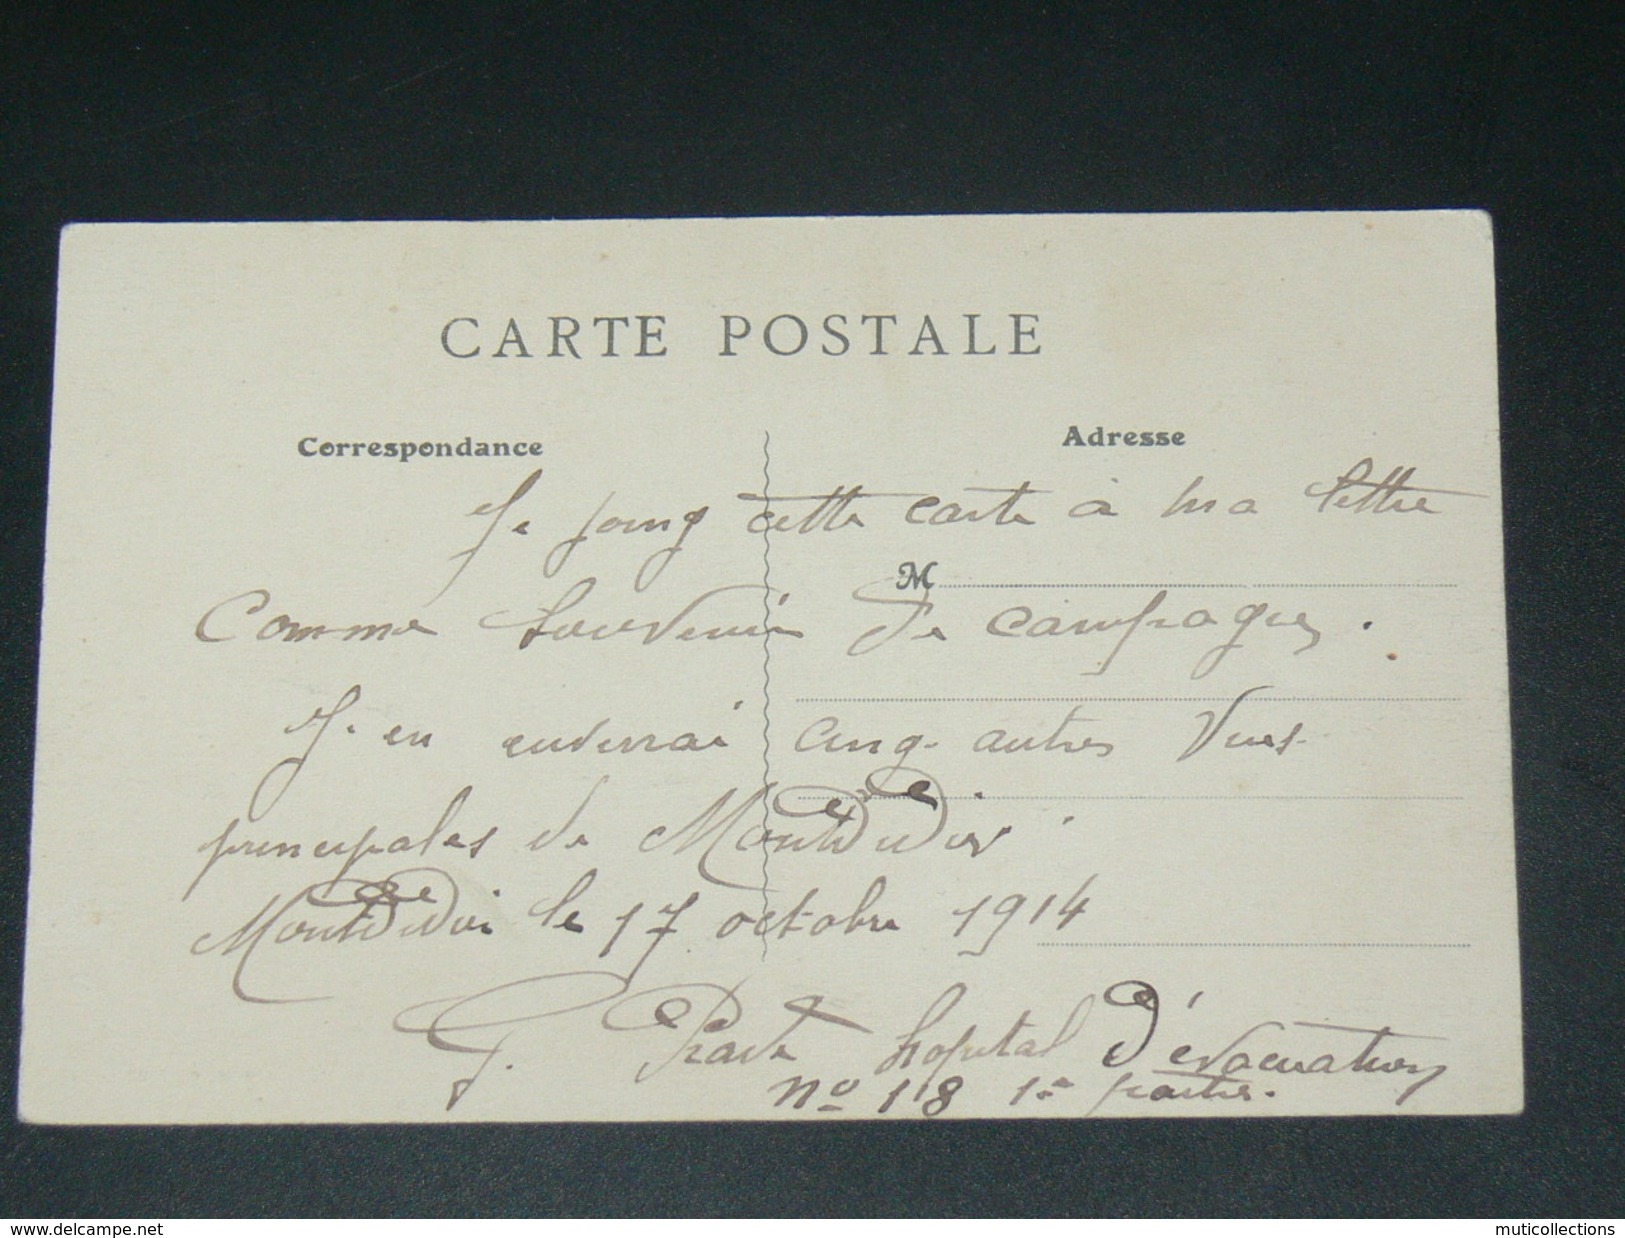 CARTE POSTALE
Correspondance
Adresse
Je joins cette carte à ma lettre
M
Comme Souvenir de campagne.
J. en enverrai cinq autres Vues
principales de Montdidier.
Montdidier le 17 octobre 1914
hopital d'évacuation
no 18 1re partie.
www.delcampe.net
muticollections